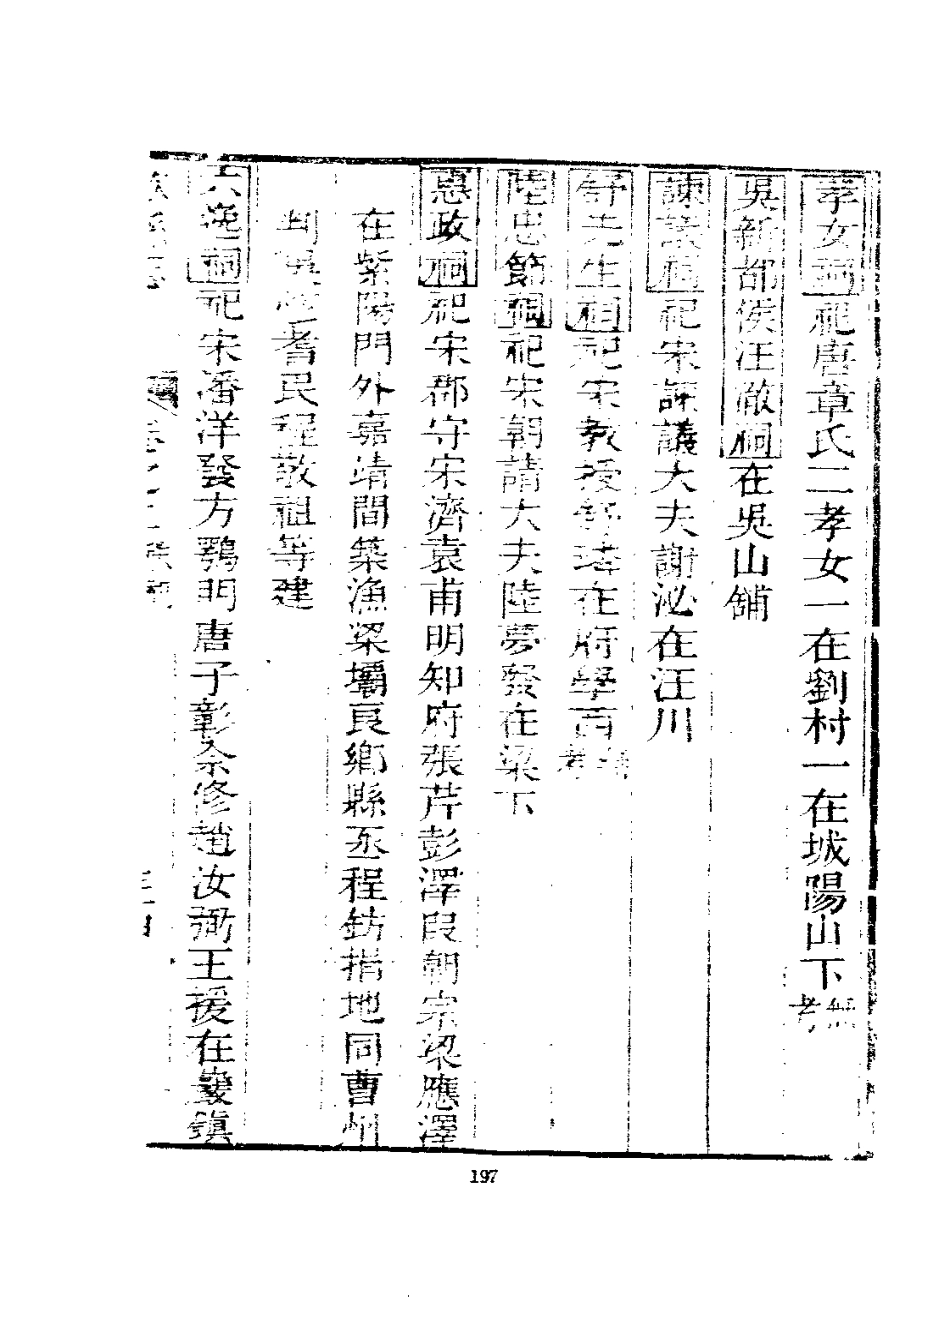 孝女祠祀唐章氏二孝女一在劉村一在城陽山下無考
吳新都侯汪濊祠在吳山舖
諫議祠祀宋諫議大夫謝泌在汪川
舒先生祠祀宋教授舒璘在府學西無考
陸忠節祠祀宋朝請大夫陸夢發在梁下
惠政祠祀宋郡守宋濟袁甫明知府張芹彭澤段朝宗梁應澤
在紫陽門外嘉靖間築漁梁壩良鄉縣丞程鈁捐地同曹州
判耆民程敬祖等建
六逸祠祀宋潘洋發方鶚門唐子彰余修趙汝弼王援在巖鎮
197